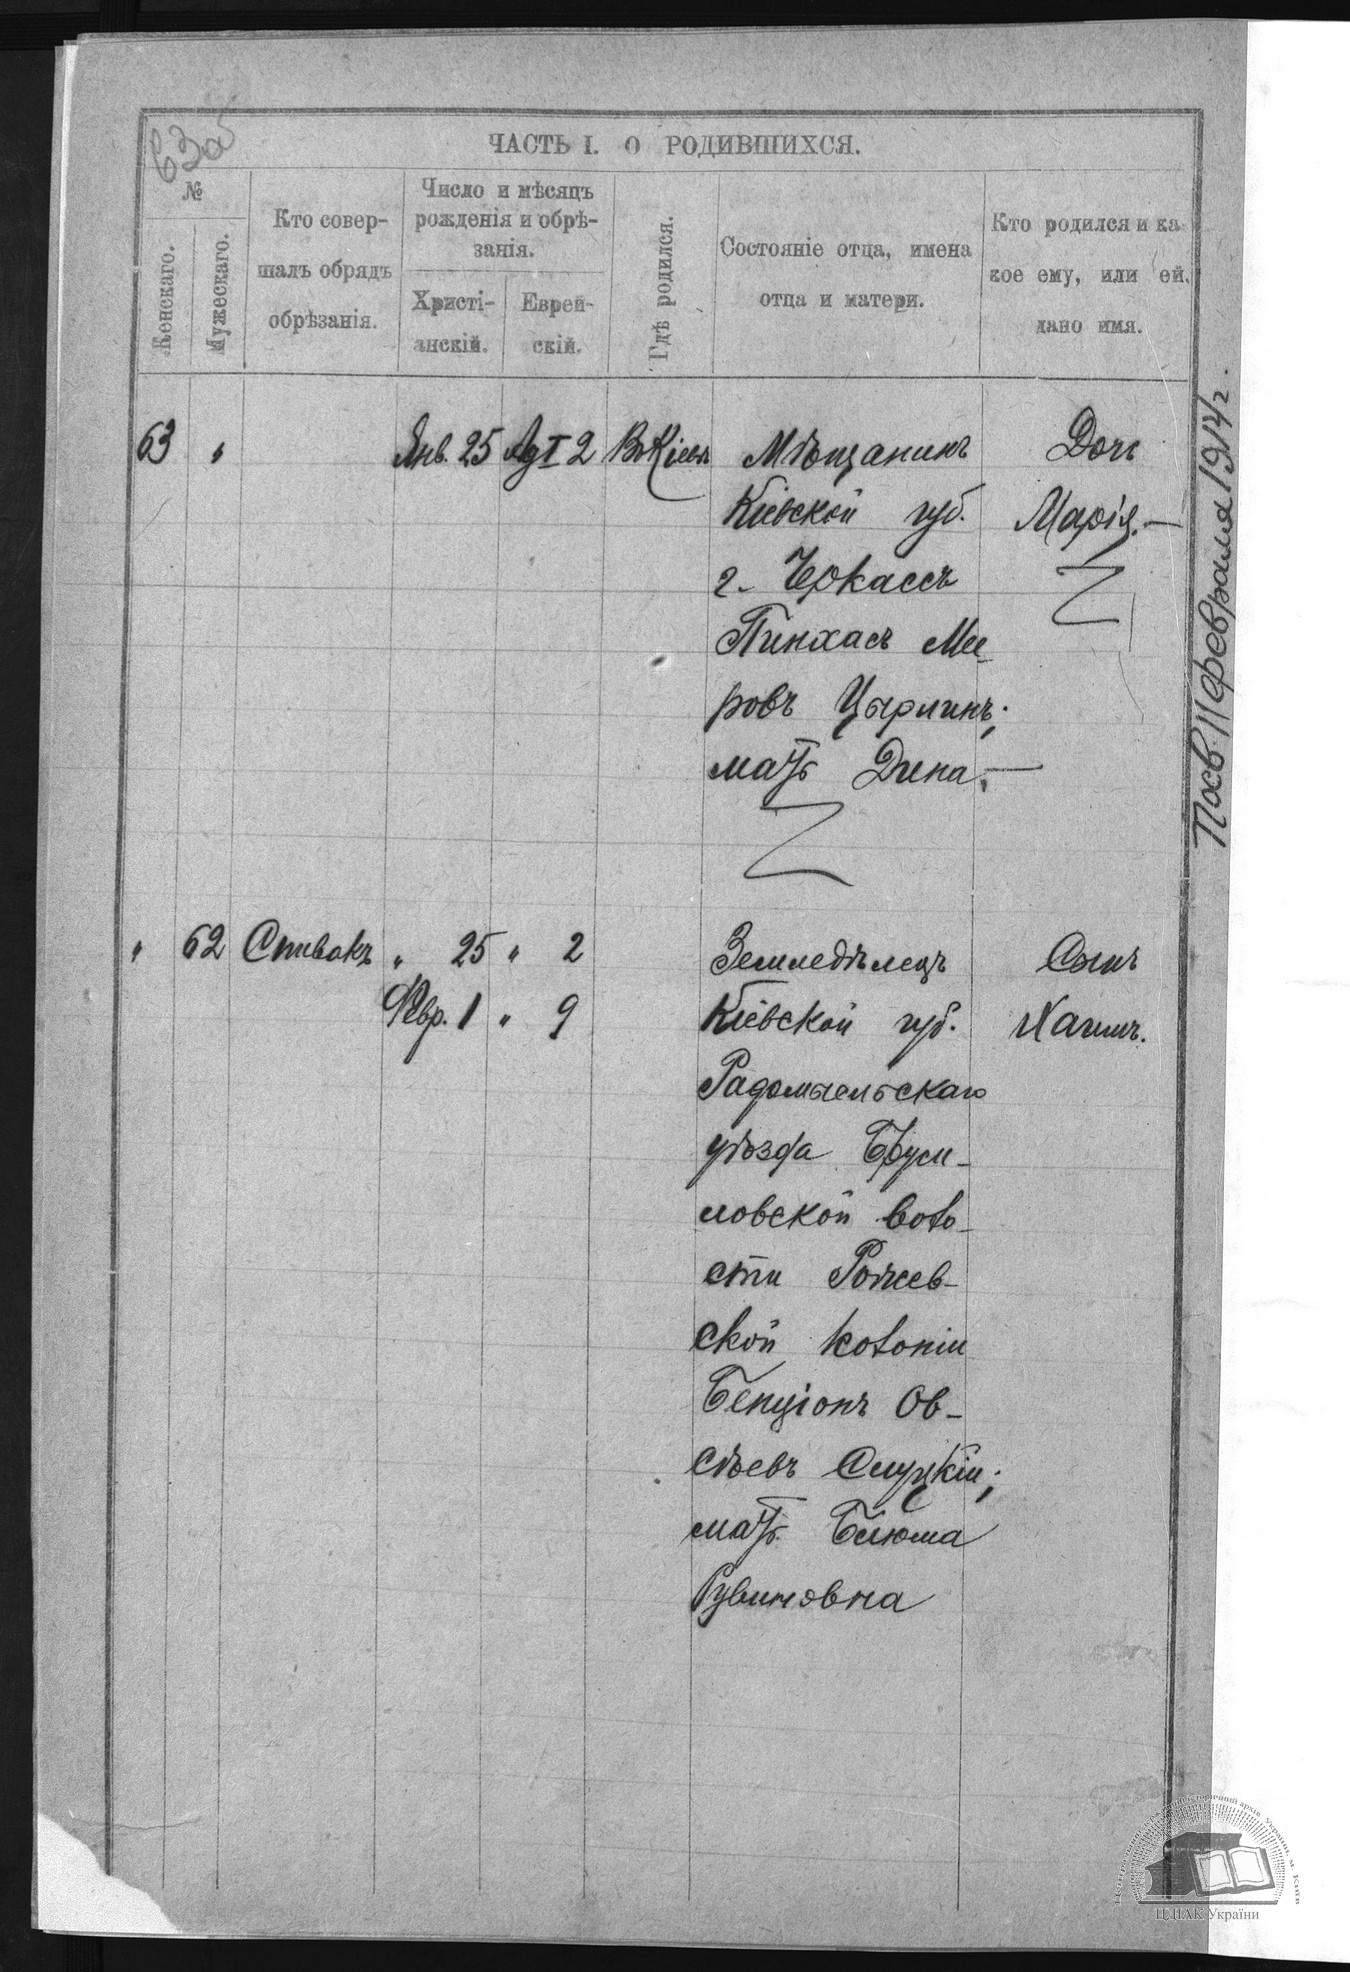 63а
ЧАСТЬ I. О РОДИВШИХСЯ.
№
Женскаго.
Мужескаго.
Кто совер-
шалъ обрядъ
обрѣзанія.
Число и мѣсяцъ
рожденія и обрѣ-
занія.
Христі-
анскій.
Еврей-
скій.
Гдѣ родился.
Состояніе отца, имена
отца и матери.
Кто родился и ка-
кое ему, или ей,
дано имя.
63 " Янв. 25 Ад I 2 Въ Кіевѣ Мѣщанинъ Дочь
Кіевской губ. Марія.—
г. Черкассъ
Пинхасъ Ме-
ровъ Цырлинъ;
мать Дина.—
" 62 Спивакъ " 25 " 2 Земледѣлецъ Сынъ
Февр. 1 " 9 Кіевской губ. Хаимъ.
Радомысльскаго
уѣзда Бруси-
ловской воло-
сти Рожев-
ской колоніи
Бенціонъ Ов-
сѣевъ Слуцкій;
мать Блюма
Рувиновна
Посв. 11 февраля 1914 г.
ЦДІАК України